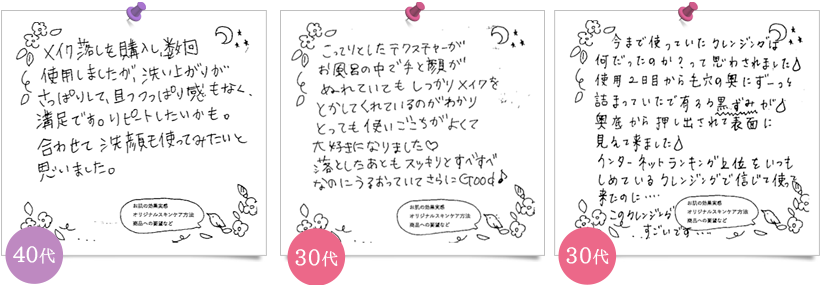 メイク落しを購入し、数回
使用しましたが、洗い上がりが
さっぱりして、且つつっぱり感もなく、
満足です。リピートしたいかも。
合わせて洗顔も使ってみたいと
思いました。
お肌の効果実感
オリジナルスキンケア方法
商品への要望など
40代
こってりとしたテクスチャーが
お風呂の中で手と顔が
ぬれていても しっかりメイクを
とかしてくれているのがわかり
とっても使いごこちがよくて
大好きになりました♡
落としたあともスッキリとすべすべ
なのにうるおっていてさらにGood♪
お肌の効果実感
オリジナルスキンケア方法
商品への要望など
30代
今まで使っていたクレンジングは
何だったのか?って思わされました
使用2日目から毛穴の奥にずーっと
詰まっていたで有ろう黒ずみが
奥底から押し出されて表面に
見えて来ました
インターネットランキング上位をいつも
しめているクレンジングで信じて使って
来たのに‥‥
このクレンジング
すごいです‥‥
お肌の効果実感
オリジナルスキンケア方法
商品への要望など
30代